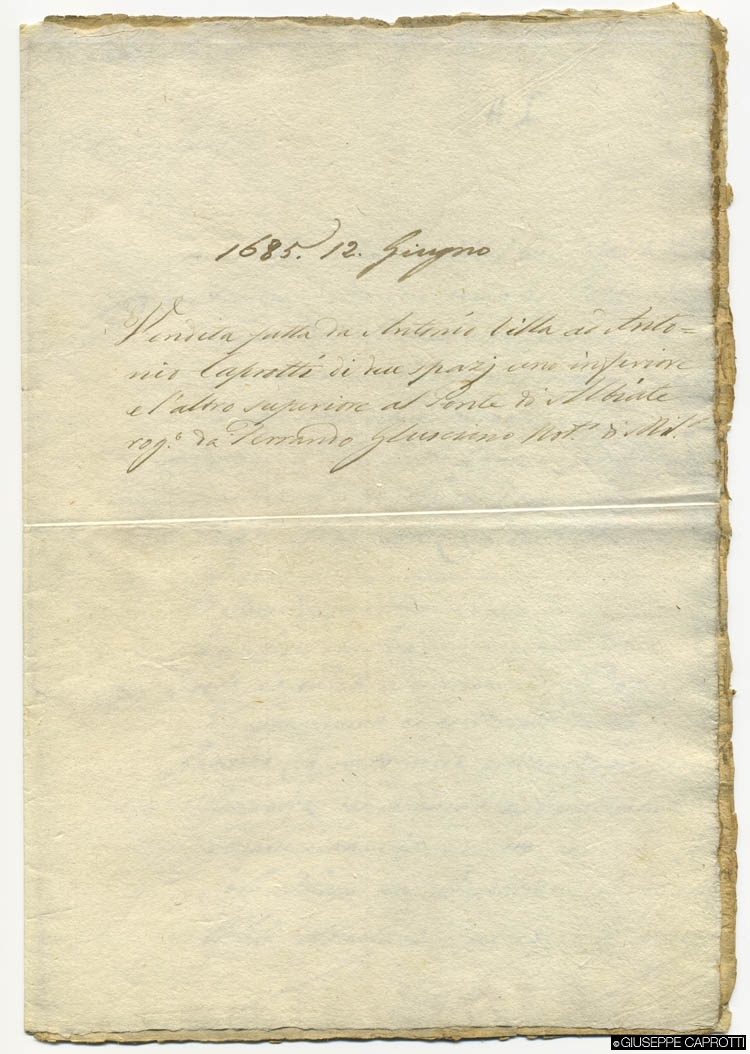 1685. 12. Giugno
Vendita fatta da Antonio Villa ad Anto=
nio Caprotti di due spazj uno inferiore
e l'altro superiore al Ponte di Albiate
rog.º da Ferrando Not.º di Mil.º
©GIUSEPPE CAPROTTI